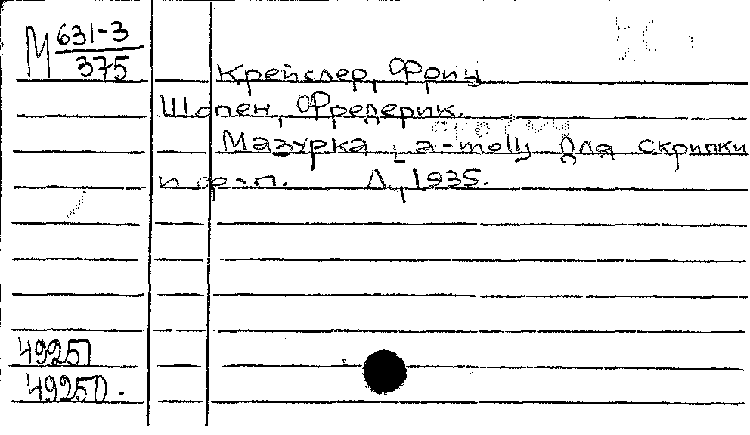 М 631-3
375
Крейслер, Фриц
Шопен, Фредерик.
Мазурка [a-moll] для скрипки
и ф-п. Л, 1935.
49251
49250.